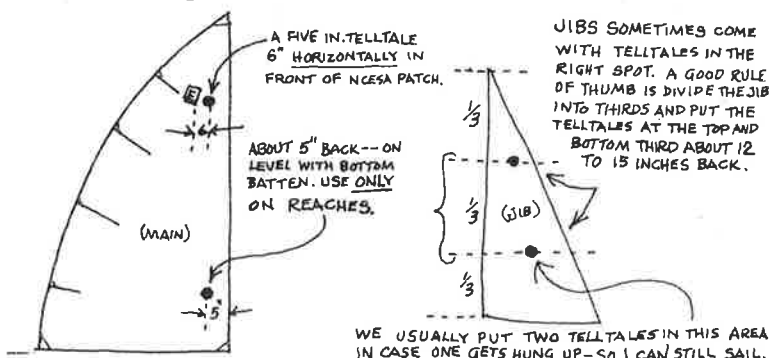 A FIVE IN. TELLTALE
6" HORIZONTALLY IN
FRONT OF NCESA PATCH.
E
6"
ABOUT 5" BACK -- ON
LEVEL WITH BOTTOM
BATTEN. USE ONLY
ON REACHES.
(MAIN)
5"
JIBS SOMETIMES COME
WITH TELLTALES IN THE
RIGHT SPOT. A GOOD RULE
OF THUMB IS DIVIDE THE JIB
INTO THIRDS AND PUT THE
TELLTALES AT THE TOP AND
BOTTOM THIRD ABOUT 12
TO 15 INCHES BACK.
1/3
1/3
(JIB)
1/3
WE USUALLY PUT TWO TELLTALES IN THIS AREA
IN CASE ONE GETS HUNG UP - SO I CAN STILL SAIL.